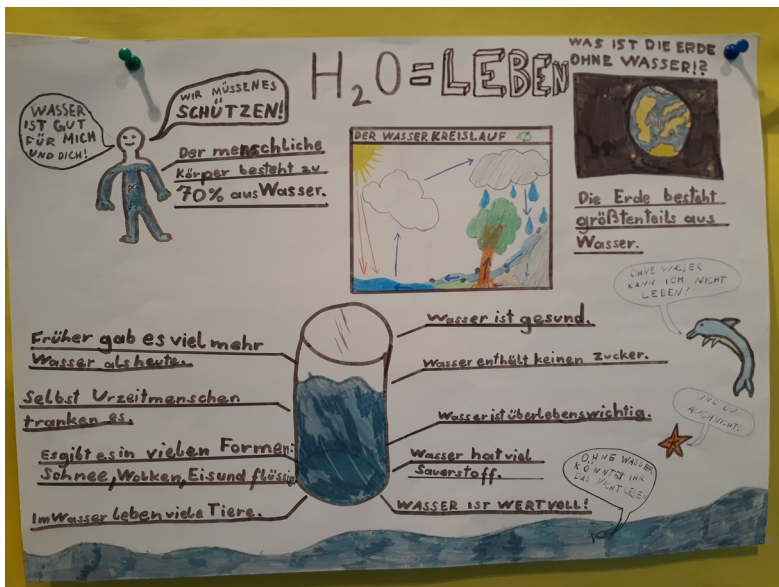 H₂O=LEBEN
WAS IST DIE ERDE
OHNE WASSER!?
WASSER
IST GUT
FÜR MICH
UND DICH!
WIR MÜSSENES
SCHÜTZEN!
Der menschliche
Körper besteht zu
70% aus Wasser.
DER WASSERKREISLAUF
Die Erde besteht
größtenteils aus
Wasser.
OHNE WASSER
KANN ICH NICHT
LEBEN!
Früher gab es viel mehr
Wasser als heute.
Selbst Urzeitmenschen
tranken es.
Es gibt es in vielen Formen:
Schnee, Wolken, Eis und flüssig
Im Wasser leben viele Tiere.
Wasser ist gesund.
Wasser enthält keinen Zucker.
Wasser ist überlebenswichtig.
Wasser hat viel
Sauerstoff.
WASSER IST WERTVOLL!
UND DU
AUCH NICHT!
OHNE WASSER
KÖNNTET IHR
DAS NICHT LESEN